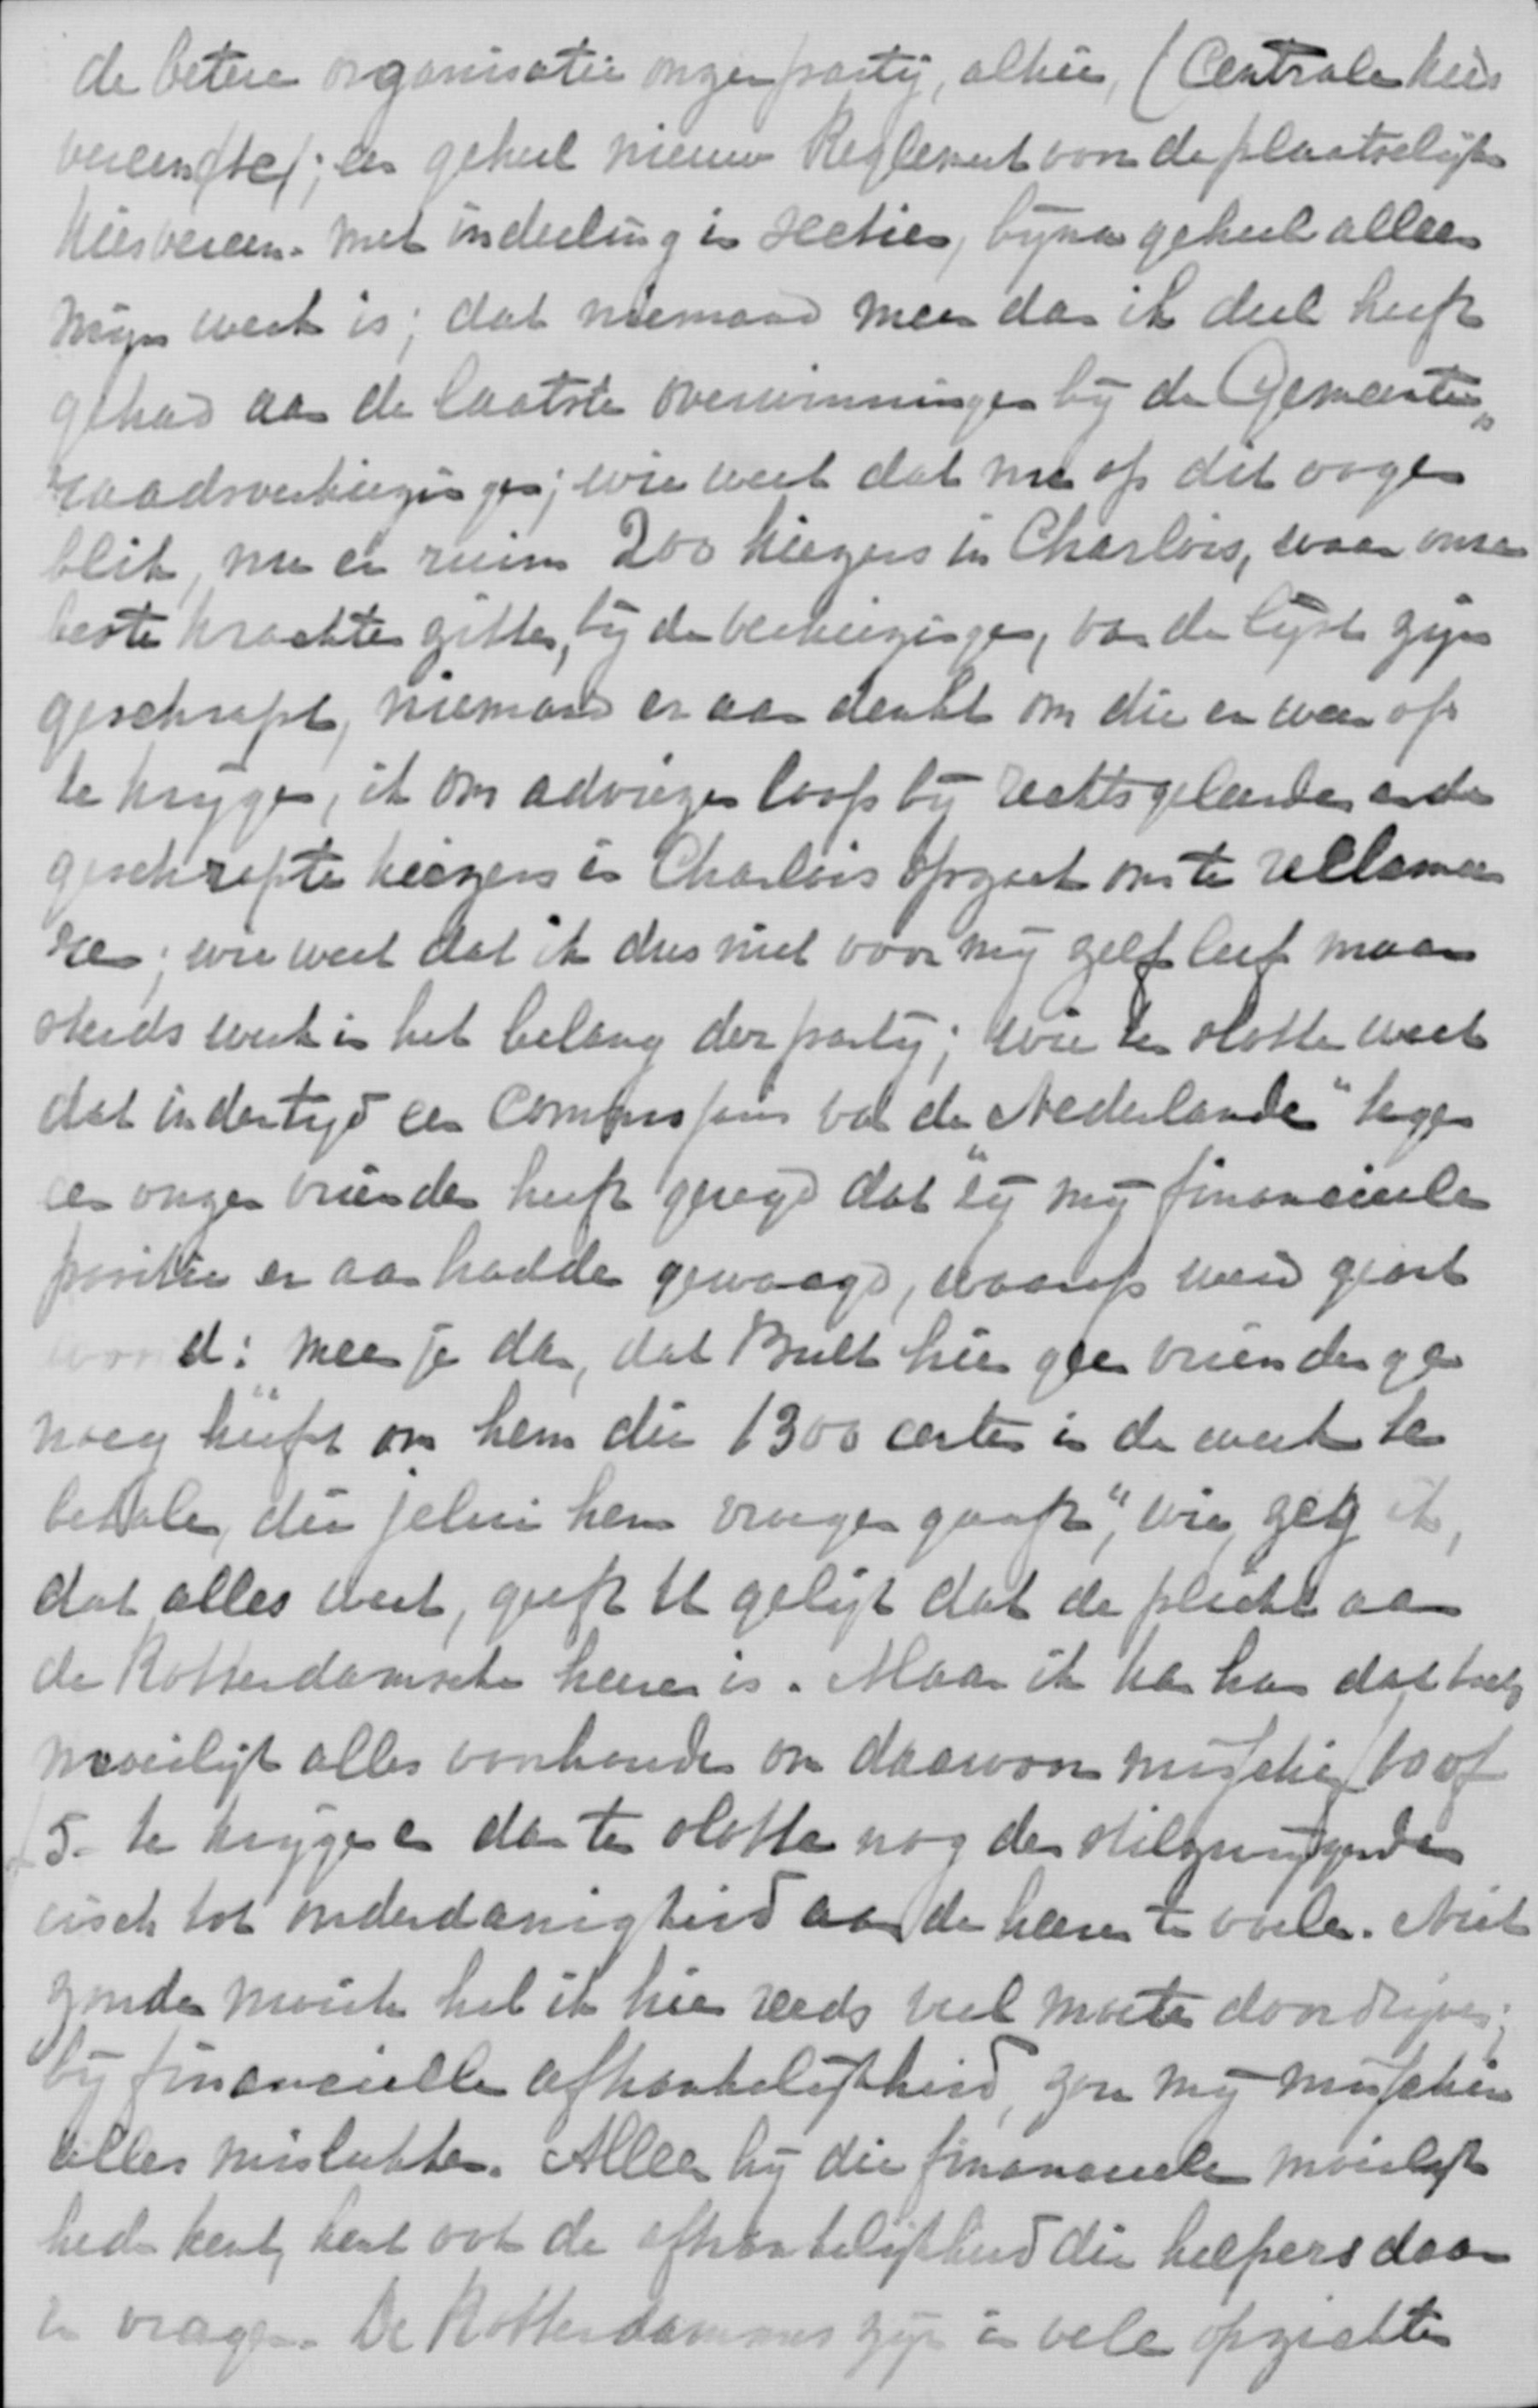 de betere organisatie onzer partij, alhier, (Centrale kies
vereen(etc); een geheel nieuw Reglement voor de plaatselijke
kiesvereen. met indeeling in secties, bijna geheel alleen
mijn werk is; dat niemand meer dan ik deel heeft
gehad aan de laatste overwinningen bij de Gemeente„
raadsverkiezingen; wie weet dat nu op dit oogen
blik, nu er ruim 200 kiezers in Charlois, waar onze
beste krachten zitten, bij de verkiezingen, van de lijst zijn
geschrapt, niemand er aan denkt om die er weer op
te krijgen, ik om adviezen loop bij rechtsgeleerden en de
geschrapte kiezers in Charlois opzoek om te reclamee
ren; wie weet dat ik dus niet voor mij zelf leef maar
steeds werk in het belang der partij; wie ten slotte weet
dat indertijd een Commissaris van de Nederlander" tegen
een onzer vrienden heeft gezegd dat "zij mij financieele
positie er aan hadden gewaagd, waarop werd geant
woord: meen je dan, dat Bult hier geen vrienden ge
noeg heeft om hem die 1300 centen in de week te
betalen, die jelui hem vroeger gaaft", wie, zeg ik,
dat alles weet, geeft U gelijk dat de plicht aan
de Rotterdamsche heeren is. Maar ik kan hun dat toch
moeilijk alles voorhouden om daarvoor misschien 10 of
15.- te krijgen en dan ten slotte nog den stilzwijgenden
eisch tot onderdanigheid aan de heeren te voelen. Niet
zonder moeite heb ik hier reeds veel moeten doordrijven;
bij financieele afhankelijkheid, zou mij misschien
alles mislukken. Alleen hij die financieele moeielijk
heden kent, kent ook de afhankelijkheid die helpers daar
in vragen. De Rotterdammers zijn in vele opzichten